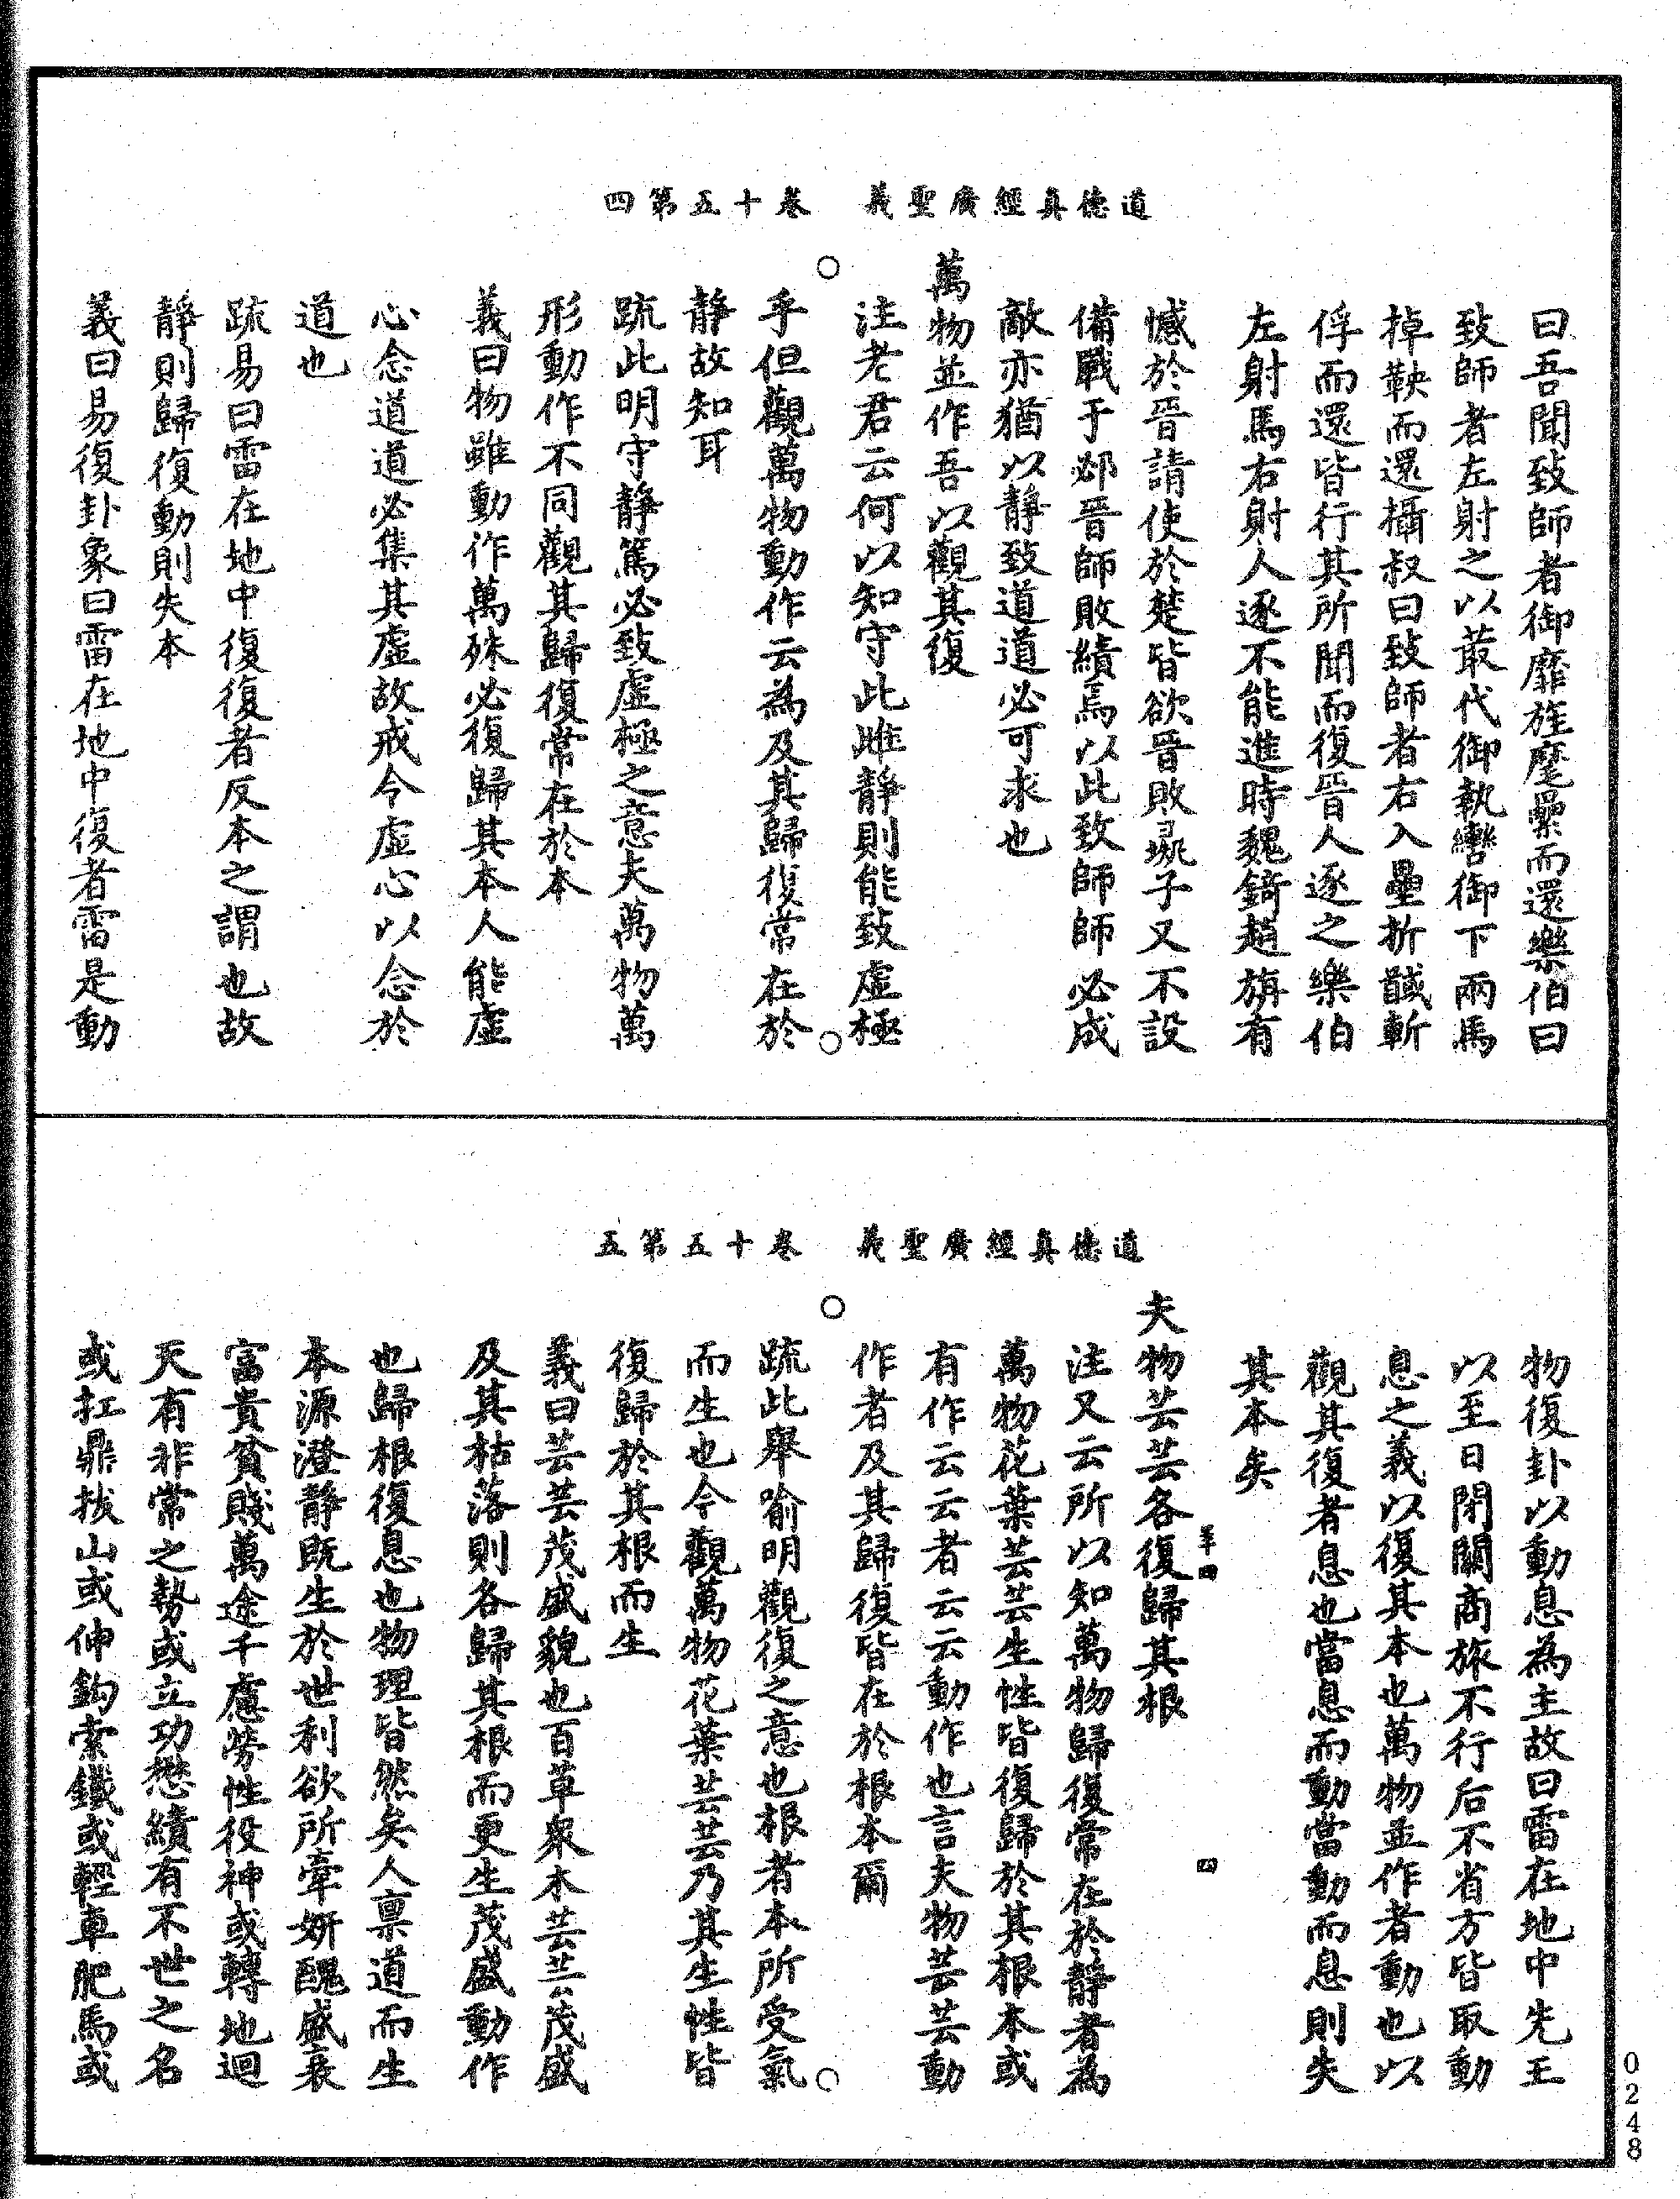 道德真經廣聖義　卷十五第四
曰吾聞致師者御靡旌麾壘而還樂伯曰
致師者左射之以菆代御執轡御下兩馬
掉鞅而還攝叔曰致師者右入壘折馘斬
俘而還皆行其所聞而復晉人逐之樂伯
左射馬右射人逐不能進時魏錡趙旃有
憾於晉請使於楚皆欲晉敗彘子又不設
備戰于邲晉師敗績焉以此致師師必成
敵亦猶以靜致道道必可求也
萬物並作吾以觀其復
注老君云何以知守此雌靜則能致虛極
乎但觀萬物動作云為及其歸復常在於
靜故知耳
疏此明守靜篤必致虛極之意夫萬物萬
形動作不同觀其歸復常在於本
義曰物雖動作萬殊必復歸其本人能虛
心念道道必集其虛故戒令虛心以念於
道也
疏易曰雷在地中復復者反本之謂也故
靜則歸復動則失本
義曰易復卦象曰雷在地中復者雷是動
道德真經廣聖義　卷十五第五
物復卦以動息為主故曰雷在地中先王
以至日閉關商旅不行后不省方皆取動
息之義以復其本也萬物並作者動也以
觀其復者息也當息而動當動而息則失
其本矣
夫物芸芸各復歸其根
注又云所以知萬物歸復常在於靜者為
萬物花葉芸芸生性皆復歸於其根本或
有作云云者云云動作也言夫物芸芸動
作者及其歸復皆在於根本爾
疏此舉喻明觀復之意也根者本所受氣
而生也今觀萬物花葉芸芸乃其生性皆
復歸於其根而生
義曰芸芸茂盛貌也百草眾木芸芸茂盛
及其枯落則各歸其根而更生茂盛動作
也歸根復息也物理皆然矣人稟道而生
本源澄靜既生於世利欲所牽妍醜盛衰
富貴貧賤萬途千慮勞性役神或轉地迴
天有非常之勢或立功懋績有不世之名
或扛鼎拔山或伸鉤索鐵或輕車肥馬或
四
0248